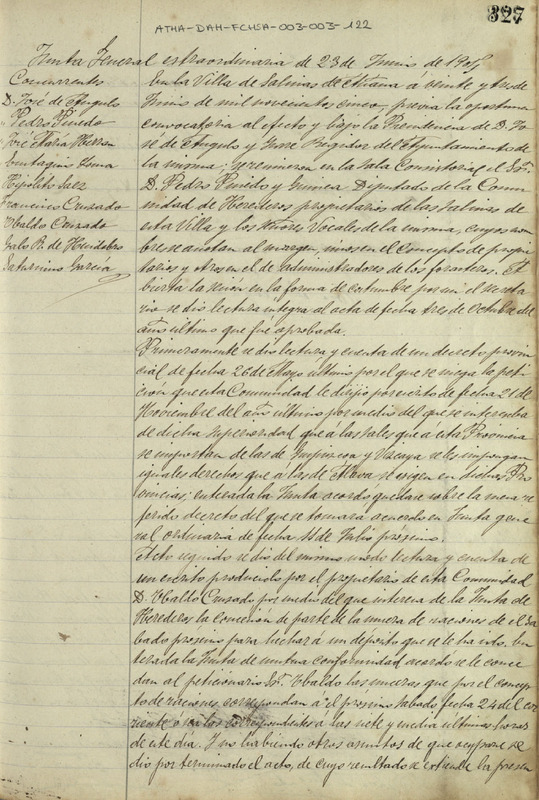 327
ATHA-DAH-FCHSA-003-003-122
Junta General extraordinaria de 23 de Junio de 1905
Concurrentes
D. José de Angulo
Pedro Pinedo
José María Herran
Hipólito Saez
Francisco Cruzado
Ubaldo Cruzado
Galo P. de Mendobro
Saturnino García
En la Villa de Salinas de Añana á veinte y tres de
Junio de mil novecientos cinco, previa la oportuna
convocatoria al efecto y bajo la Presidencia de D. Jo-
sé de Angulo y Regidor del Ayuntamiento de
la misma; se reunieron en la Sala Consistorial el Sr.
D. Pedro Pinedo y Guinea Diputado de la Comu-
nidad de Herederos propietarios de las Salinas de
esta Villa y los Señores Vocales de la misma, cuyos nom-
bres se anotan al margen, unos en el concepto de propie-
tarios y otros en el de administradores de los forasteros. A-
bierta la sesion en la forma de costumbre por mi el secreta-
rio se dió lectura integra al acta de fecha tres de Octubre del
año ultimo que fué aprobada.
Primeramente se dió lectura y cuenta de un decreto provin-
cial de fecha 26 de Mayo ultimo por el que se niega la peti-
ción que esta Comunidad le dirijio por escrito de fecha 21 de
Noviembre del año ultimo por medio del que se interesaba
de dicha superioridad que á las sales que á esta Provincia
se importan de las de Guipuzcoa y Vizcaya se les impongan
iguales derechos que á las de Alava se exigen en dichas Pro-
vincias; enterada la Junta acordó quedase sobre la mesa re-
ferido decreto del que se tomara acuerdo en Junta gene-
ral ordinaria de fecha 11 de Julio próximo.
Acto seguido se dió del mismo modo lectura y cuenta de
un escrito producido por el propietario de esta Comunidad
D. Ubaldo Cruzado por medio del que interesa de la Junta de
Herederos la concesion de parte de la muera de raciones de el Sa-
bado proximo para hechar á un deposito que se le ha ido. En-
terada la Junta de mutua conformidad acordó se le conce-
dan al peticionario Sr. Ubaldo las mueras que por el concep-
to de raciones correspondan á el proximo sabado fecha 24 del cor-
riente o sea las correspondientes á las siete y media ultimas horas
de este dia. Y no habiendo otros asuntos de que ocuparse se
dió por terminado el acto, de cuyo resultado se extiende la presen